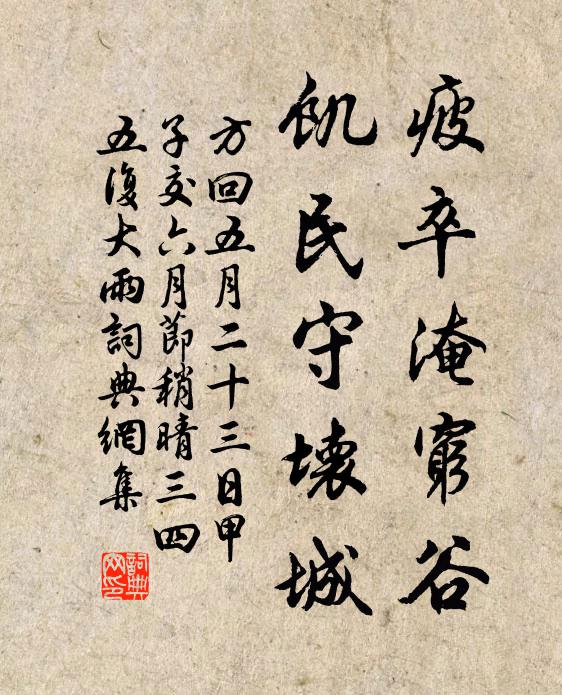 疲卒淹窮谷
飢民守壞城
方回五月二十三日甲
子交六月節稍晴三四
五復大雨詞典網集
詞典网印